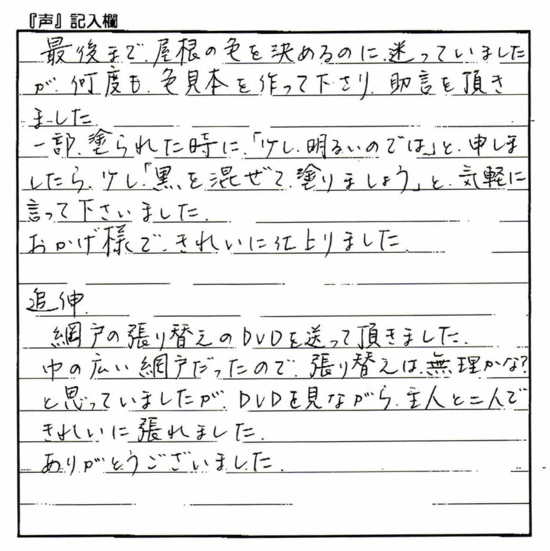 『声』記入欄
最後まで、屋根の色を決めるのに、迷っていました
が、何度も、色見本を作って下さり、助言を頂き
ました。
一部、塗られた時に、「少し、明るいのでは」と、申しま
したら、少し「黒、を混ぜて、塗りましょう」と、気軽に
言って下さいました。
おかげ様で、きれいに仕上りました。
追伸、
網戸の張り替えのDVDを送って頂きました。
巾の広い網戸だったので、張り替えは、無理かな?
と思っていましたが、DVDを見ながら、主人と二人で
きれいに張れました。
ありがとうございました。